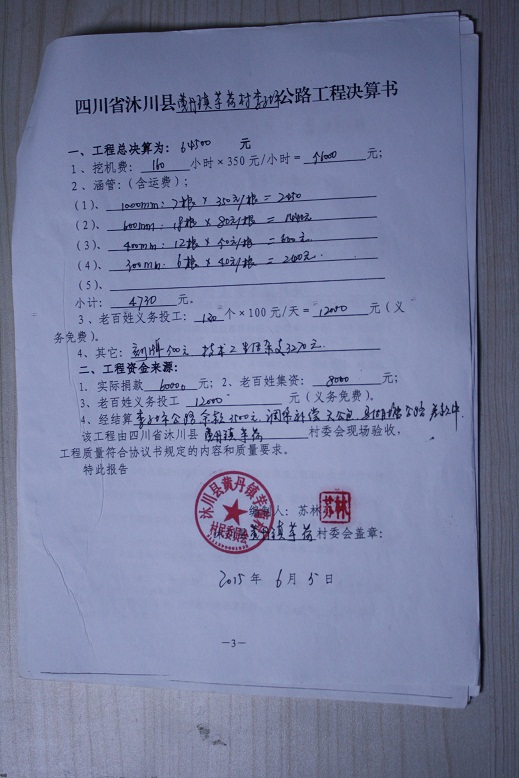 四川省沐川县黄丹镇芋荷村 公路工程决算书
一、工程总决算为: 64500 元
1、挖机费: 160 小时×350元/小时= 56000 元;
2、涵管:(含运费);
(1)、 1000mm: 7根 × 350元/根 = 2450
(2)、 600mm: 18根 × 80元/根 = 1440元
(3)、 400mm: 12根 × 50元/根 = 600元
(4)、 300mm: 6根 × 40元/根 = 240元.
(5)、
小计: 4730 元。
3、老百姓义务投工: 120 个×100元/天= 12000 元(义
务免费)。
4、其它: 刻牌500元 技术工 3270元.
二、工程资金来源:
1. 实际捐款 60000 元; 2、老百姓集资: 8000 元;
3、老百姓义务投工 12000 元(义务免费)。
4、经结算 公路余款3500元
该工程由四川省沐川县 黄丹镇芋荷 村委会现场验收,
工程质量符合协议书规定的内容和质量要求。
特此报告
编制人: 苏林
苏林
沐川县黄丹镇芋荷 村委会盖章:
沐川县黄丹镇芋荷村
村民委员会
2015年 6月 5日
—3—